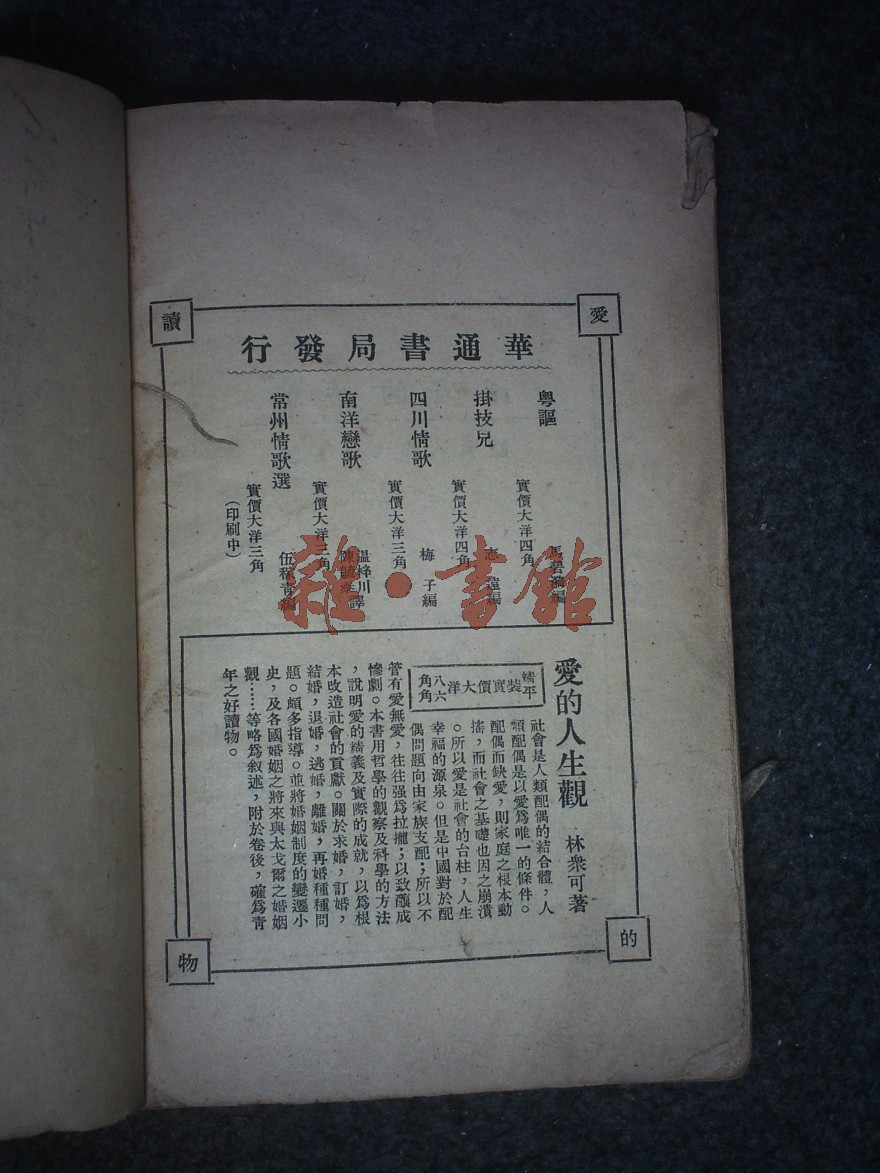 愛
的
讀
物
華通書局發行
粵謳
實價大洋四角
編
掛技兒
實價大洋四角
遠編
四川情歌
梅子編
實價大洋三角
南洋戀歌
溫梓川譯
實價大洋三角
常州情歌選
伍稼青編
實價大洋三角
(印刷中)
愛的人生觀
林衆可著
精平裝實價大洋八六角角
社會是人類配偶的結合體,人
類配偶是以愛爲唯一的條件。
配偶而缺愛,則家庭之根本動
搖,而社會之基礎也因之崩潰
。所以愛是社會的台柱,人生
幸福的源泉。但是中國對於配
偶問題向由家族支配;所以不
管有愛無愛,往往强爲拉攏;以致釀成
慘劇。本書用哲學的觀察及科學的方法
,說明愛的精義及實際的成就,以爲根
本改造社會的貢獻。關於求婚,訂婚,
結婚,退婚,逃婚,離婚,再婚種種問
題。頗多指導。並將婚姻制度的變遷小
史,及各國婚姻之將來與太戈爾之婚姻
觀……等略爲叙述,附於卷後,確爲青
年之好讀物。
雜·書館